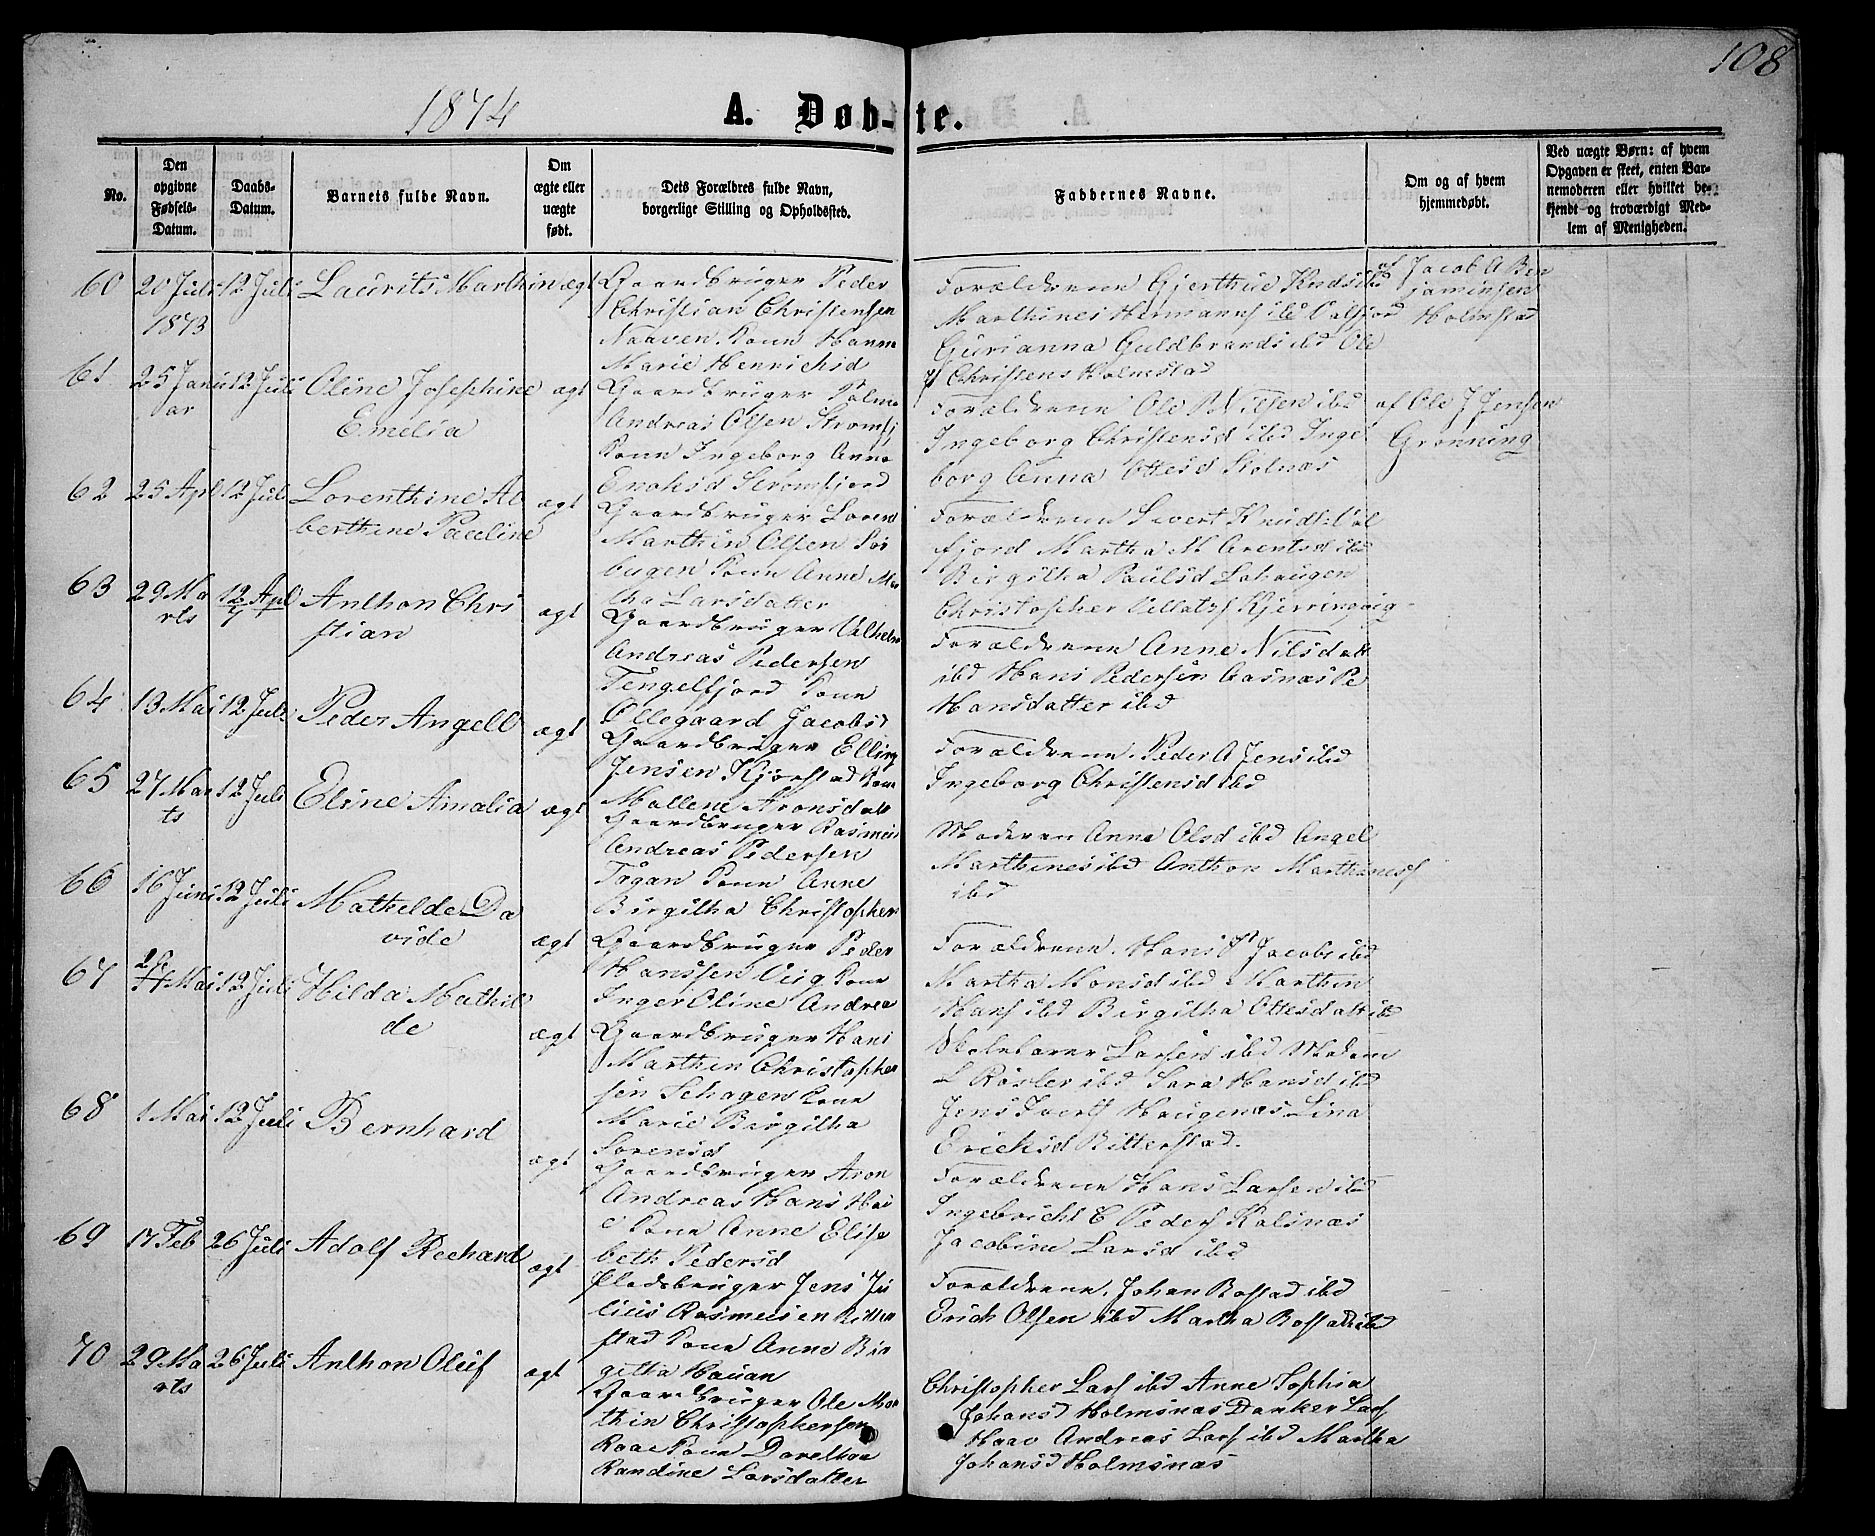 108
1874
A. Døb-te.
No.
Den opgivne Fødsels-Datum.
Daabs-Datum.
Barnets fulde Navn.
Om ægte eller uægte født.
Dets Forældres fulde Navn, borgerlige Stilling og Opholdssted.
Faddernes Navne.
Om og af hvem hjemmedøbt.
Ved uægte Børn: af hvem Opgaven er skeet, enten Barnemoderen eller hvilket bekjendt og troværdigt Medlem af Menigheden.
60
20 Juli
1873
12 Juli
Laurits Marthin
ægt
Gaardbruger Peder
Christian Christensen
Naaven Kone Hanna
Marie Henrichsd
Forældrene Gjerthrie Knds ibd
Marthines Hermanns ibd Valfjord
Gurianna Guldbrands ibd Ole
Christens Holmstad
af Jacob A Ben
jaminsen
Holmstad
61
25 Janu
ar
12 Juli
Oline Josephine
Emelia
ægt
Gaardbruger Palme
Andreas Olsen Strømfj
Kone Ingeborg Anna
Enoksd Strømfjord
Forældrene Ole P Nilsen ibd
Ingeborg Christensd ibd Inge
borg Anna Ottesd Skolnæs
af Ole J Jensen
Grønning
62
25 Apl
12 Juli
Lorenthine Al
berthine Pauline
ægt
Gaardbruger Lorens
Marthin Olsen Sør
bugen Kone Anne Mar
tha Larsdatter
Forældrene Sivert Knuds Val
fjord Martha M Arentsd ibd
Birgitha Paulsd Lahaugen
Christopher Villatzs Kjerringvig
63
29 Ma
rts
12 Apl
7
Anthon Chri
stian
ægt
Gaardbruger Vilhelm
Andreas Pedersen
Tengelfjord Kone
Ollegaard Jacobsd
Forældrene Anne Nilsdatt
ibd Hans Pedersen Aasnæs Pe
Hansdatter ibd
64
13 Mai
12 Juli
Peder Angell
ægt
Gaardbruger Elling
Jensen Kjørstad Kone
Mallene Aronsdatt
Forældrene. Peder A Jens ibd
Ingeborg Christensd ibd
65
27 Mar
ts
12 Juli
Eline Amalia
ægt
Gaardbruger Rasmus
Andreas Pedersen
Tøgan Kone Anne
Birgitha Christophers
Moderen Anna Olsd ibd Angel
Marthines ibd Anthon Marthiness
ibd
66
16 Juni
12 Juli
Mathilde Da
vide
ægt
Gaardbruger Peder
Hanssen Vig Kone
Inger Oline Andrea
Forældrene. Hans P Jacobs ibd
Martha Monsd ibd Marthin
Hans ibd Birgitha Ottesdatt ib
67
Mai
12 Juli
Hilda Mathil
de
ægt
Gaardbruger Hans
Marthin Christopher
sen Schagen Kone
Marie Birgitha
Sørensd
Skolelærer Larsen ibd Madam
L Røsler ibd Sara Hansd ibd
Jens Ivers Haugenæs Lina
Ericksd Bitterstad.
68
1 Mai
12 Juli
Bernhard
ægt
Gaardbruger Aron
Andreas Hans
Kone Anne Elisa
beth Pedersd
Forældrene Hans Larsen ibd
Ingebricht C Peders Kalsnæs
Jacobine Larsd ibd
69
17 Feb
26 Juli
Adolf Rechard
ægt
Pladsbruger Jens Ju
lius Rasmusen Bitter
stad Kone Anne Bir
githa Hauan
Forældrene. Johan Rostad ibd
Erich Olsen ibd Martha Rostad ibd
70
29 Ma
rts
26 Juli
Anthon Oluf
ægt
Gaardbruger Ole Mar
thin Christophersen
Raae Kone Dorelhea
Randine Larsdatter
Christopher Lars ibd Anne Sophia
Johansd Holmsnæs Danker Lars
Haav Andreas Lars ibd Martha
Johansd Holmsnæs